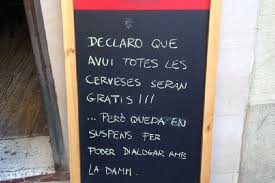 DECLARO QUE
AVUI TOTES LES
CERVESES SERAN
GRATIS!!!
...PERÒ QUEDA EN
SUSPENS PER
PODER DIALOGAR AMB
LA DAMM.